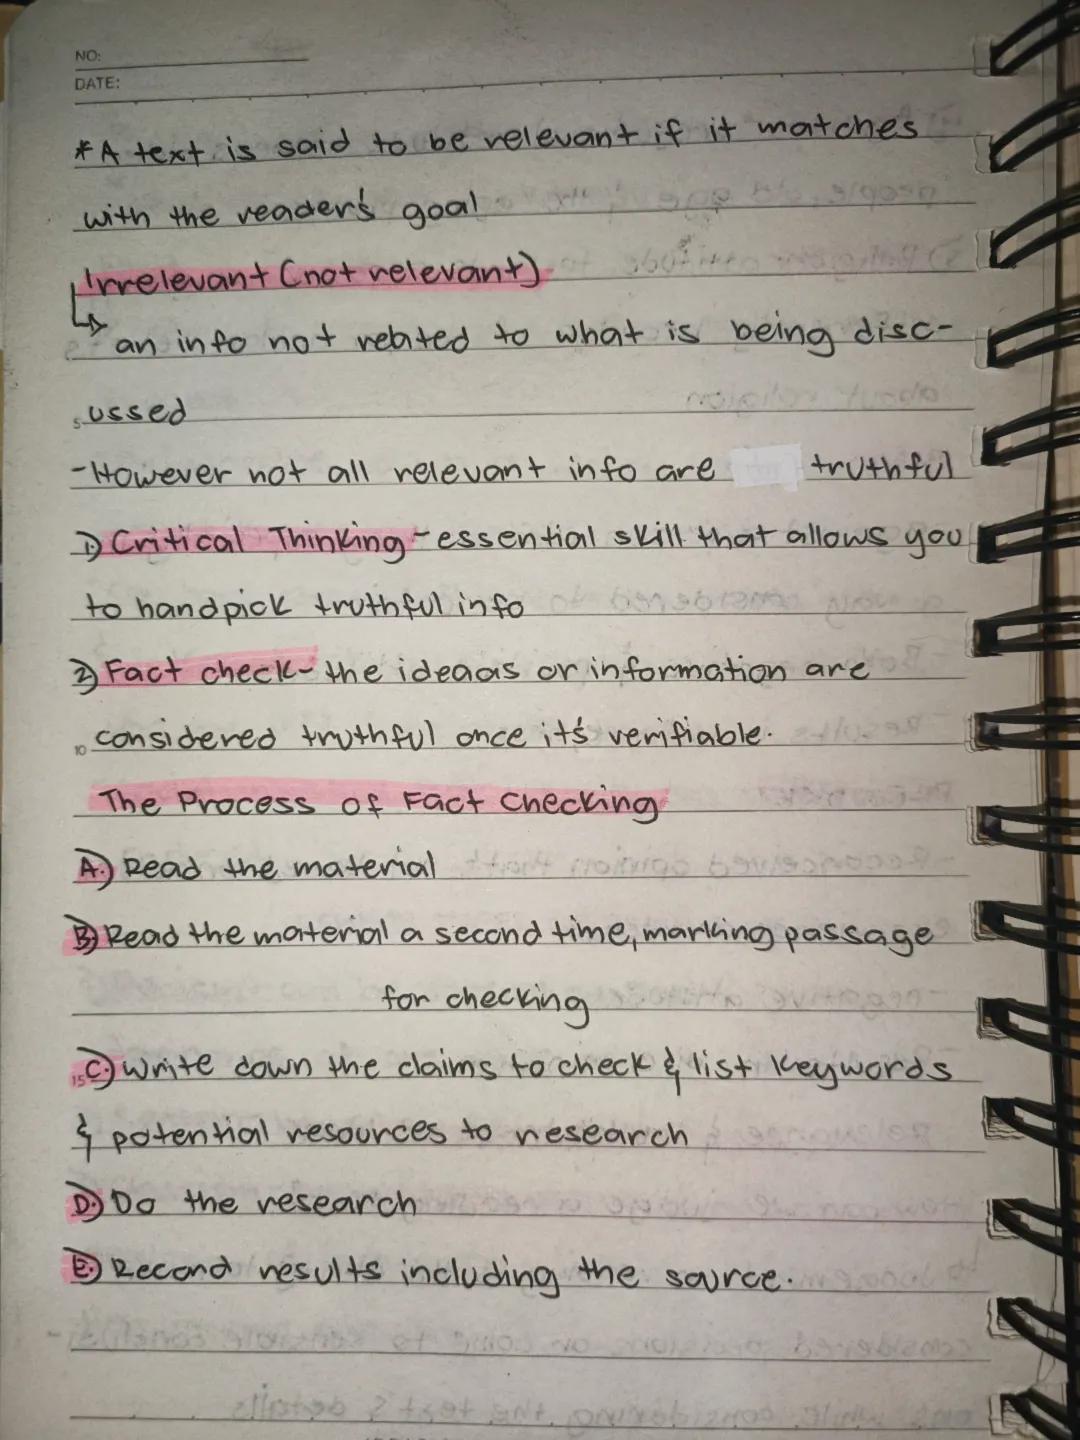 NO:
DATE:
*A text is said to be relevant if it matches
with the reader's goal
Irrelevant (not relevant)
an info not related to what is being disc-
ussed
-However not all relevant info are truthful
1.) Critical Thinking - essential skill that allows you
to handpick truthful info
2) Fact check- the ideaas or information are
considered truthful once it's verifiable.
The Process of Fact Checking
A.) Read the material
B.) Read the material a second time, marking passage
for checking
C.) Write down the claims to check & list keywords
& potential resources to research
D.) Do the research
E.) Record results including the source.